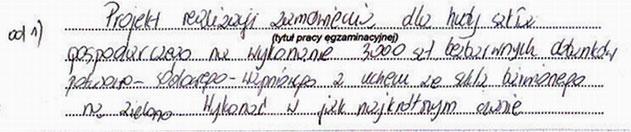 ad 1) Projekt realizacji zamówienia dla huty szkła
(tytuł pracy egzaminacyjnej)
gospodarczego na wykonanie 3000 szt bezbarwnych
z uchem ze szkła barwionego
na zielono Wykonać w jak najkrótszym czasie